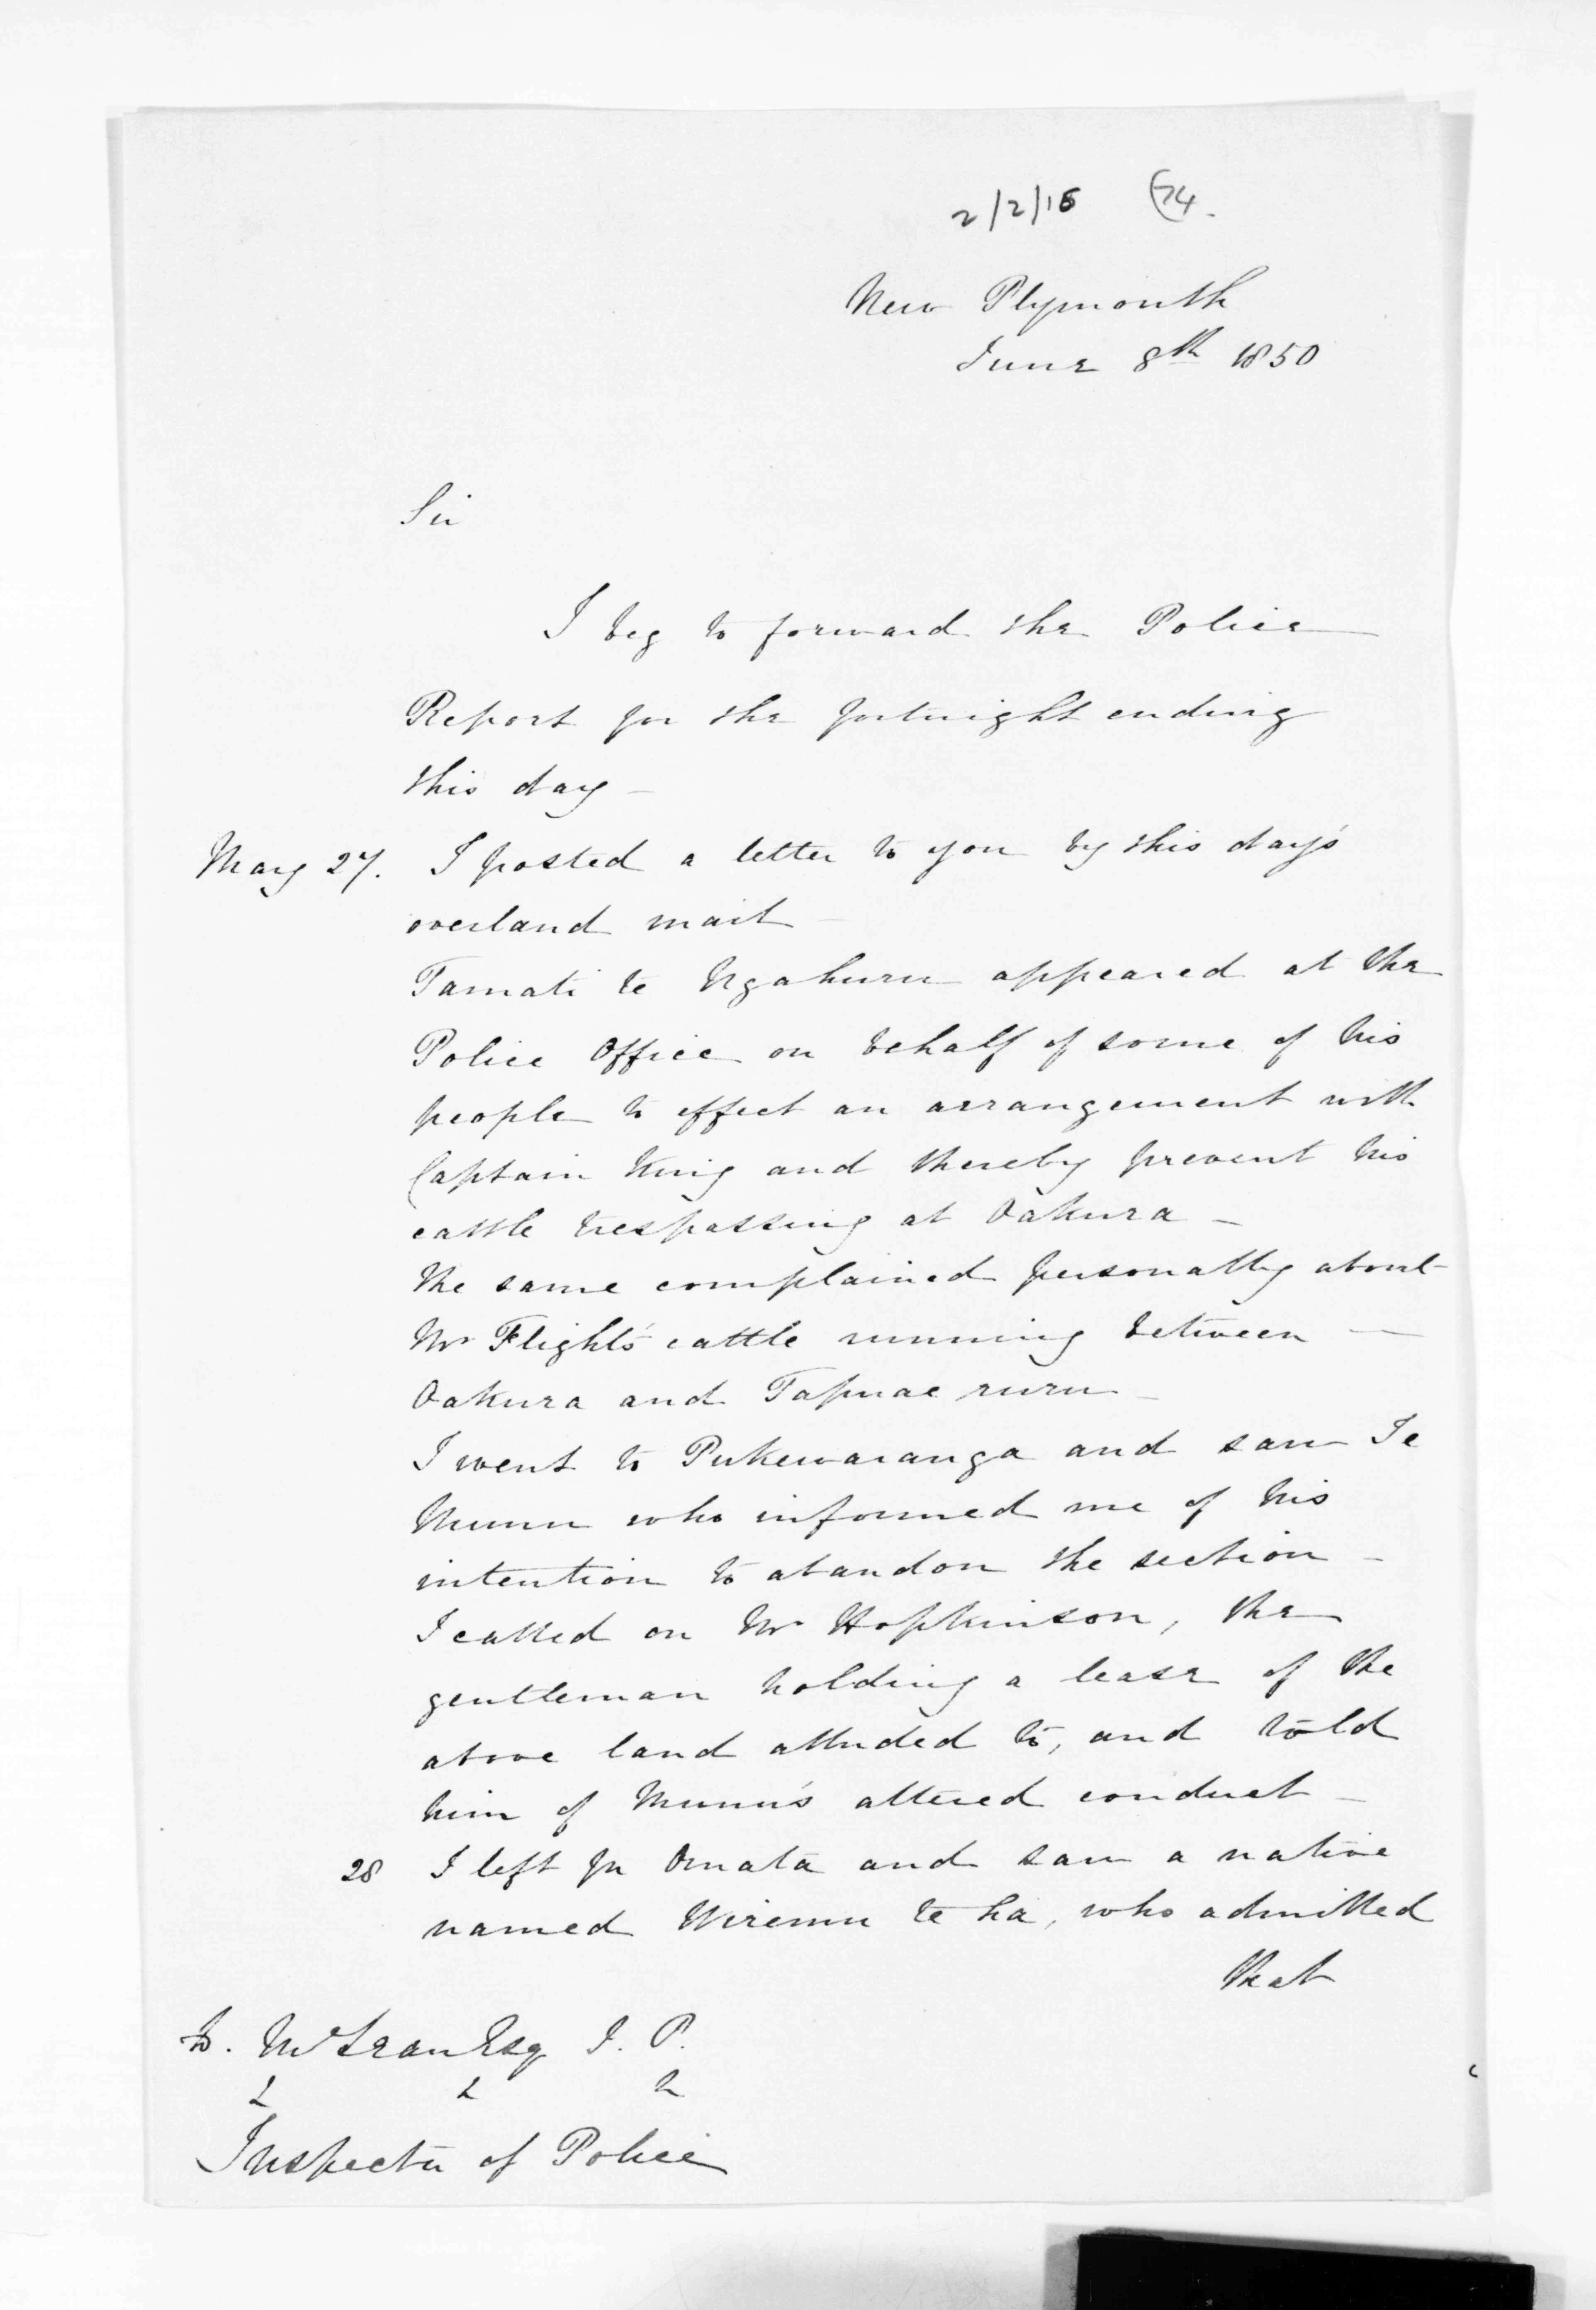 2/2/16 74.
New Plymouth
June 8th 1850
Sir
I beg to forward the Police
Report for the fortnight ending
this day -
May 27. I posted a letter to you by this day's
overland mail -
Tamati te Ngahuru appeared at the
Police Office on behalf of some of his
people to effect an arrangement with
Captain King and thereby prevent his
cattle trespassing at Oakura -
The same complained personally about
Mr Flight's cattle running between -
Oakura and Tapuae ruru -
I went to Pukewaranga and saw Te
Munu who informed me of his
intention to abandon the section -
I called on Mr Hopkinson, the
gentleman holding a lease of the
above land alluded to, and told
him of Munu's altered conduct -
28 I left for Omata and saw a native
named Wiremu te ha, who admitted
that
D. McLean Esq J. P.
Inspector of Police